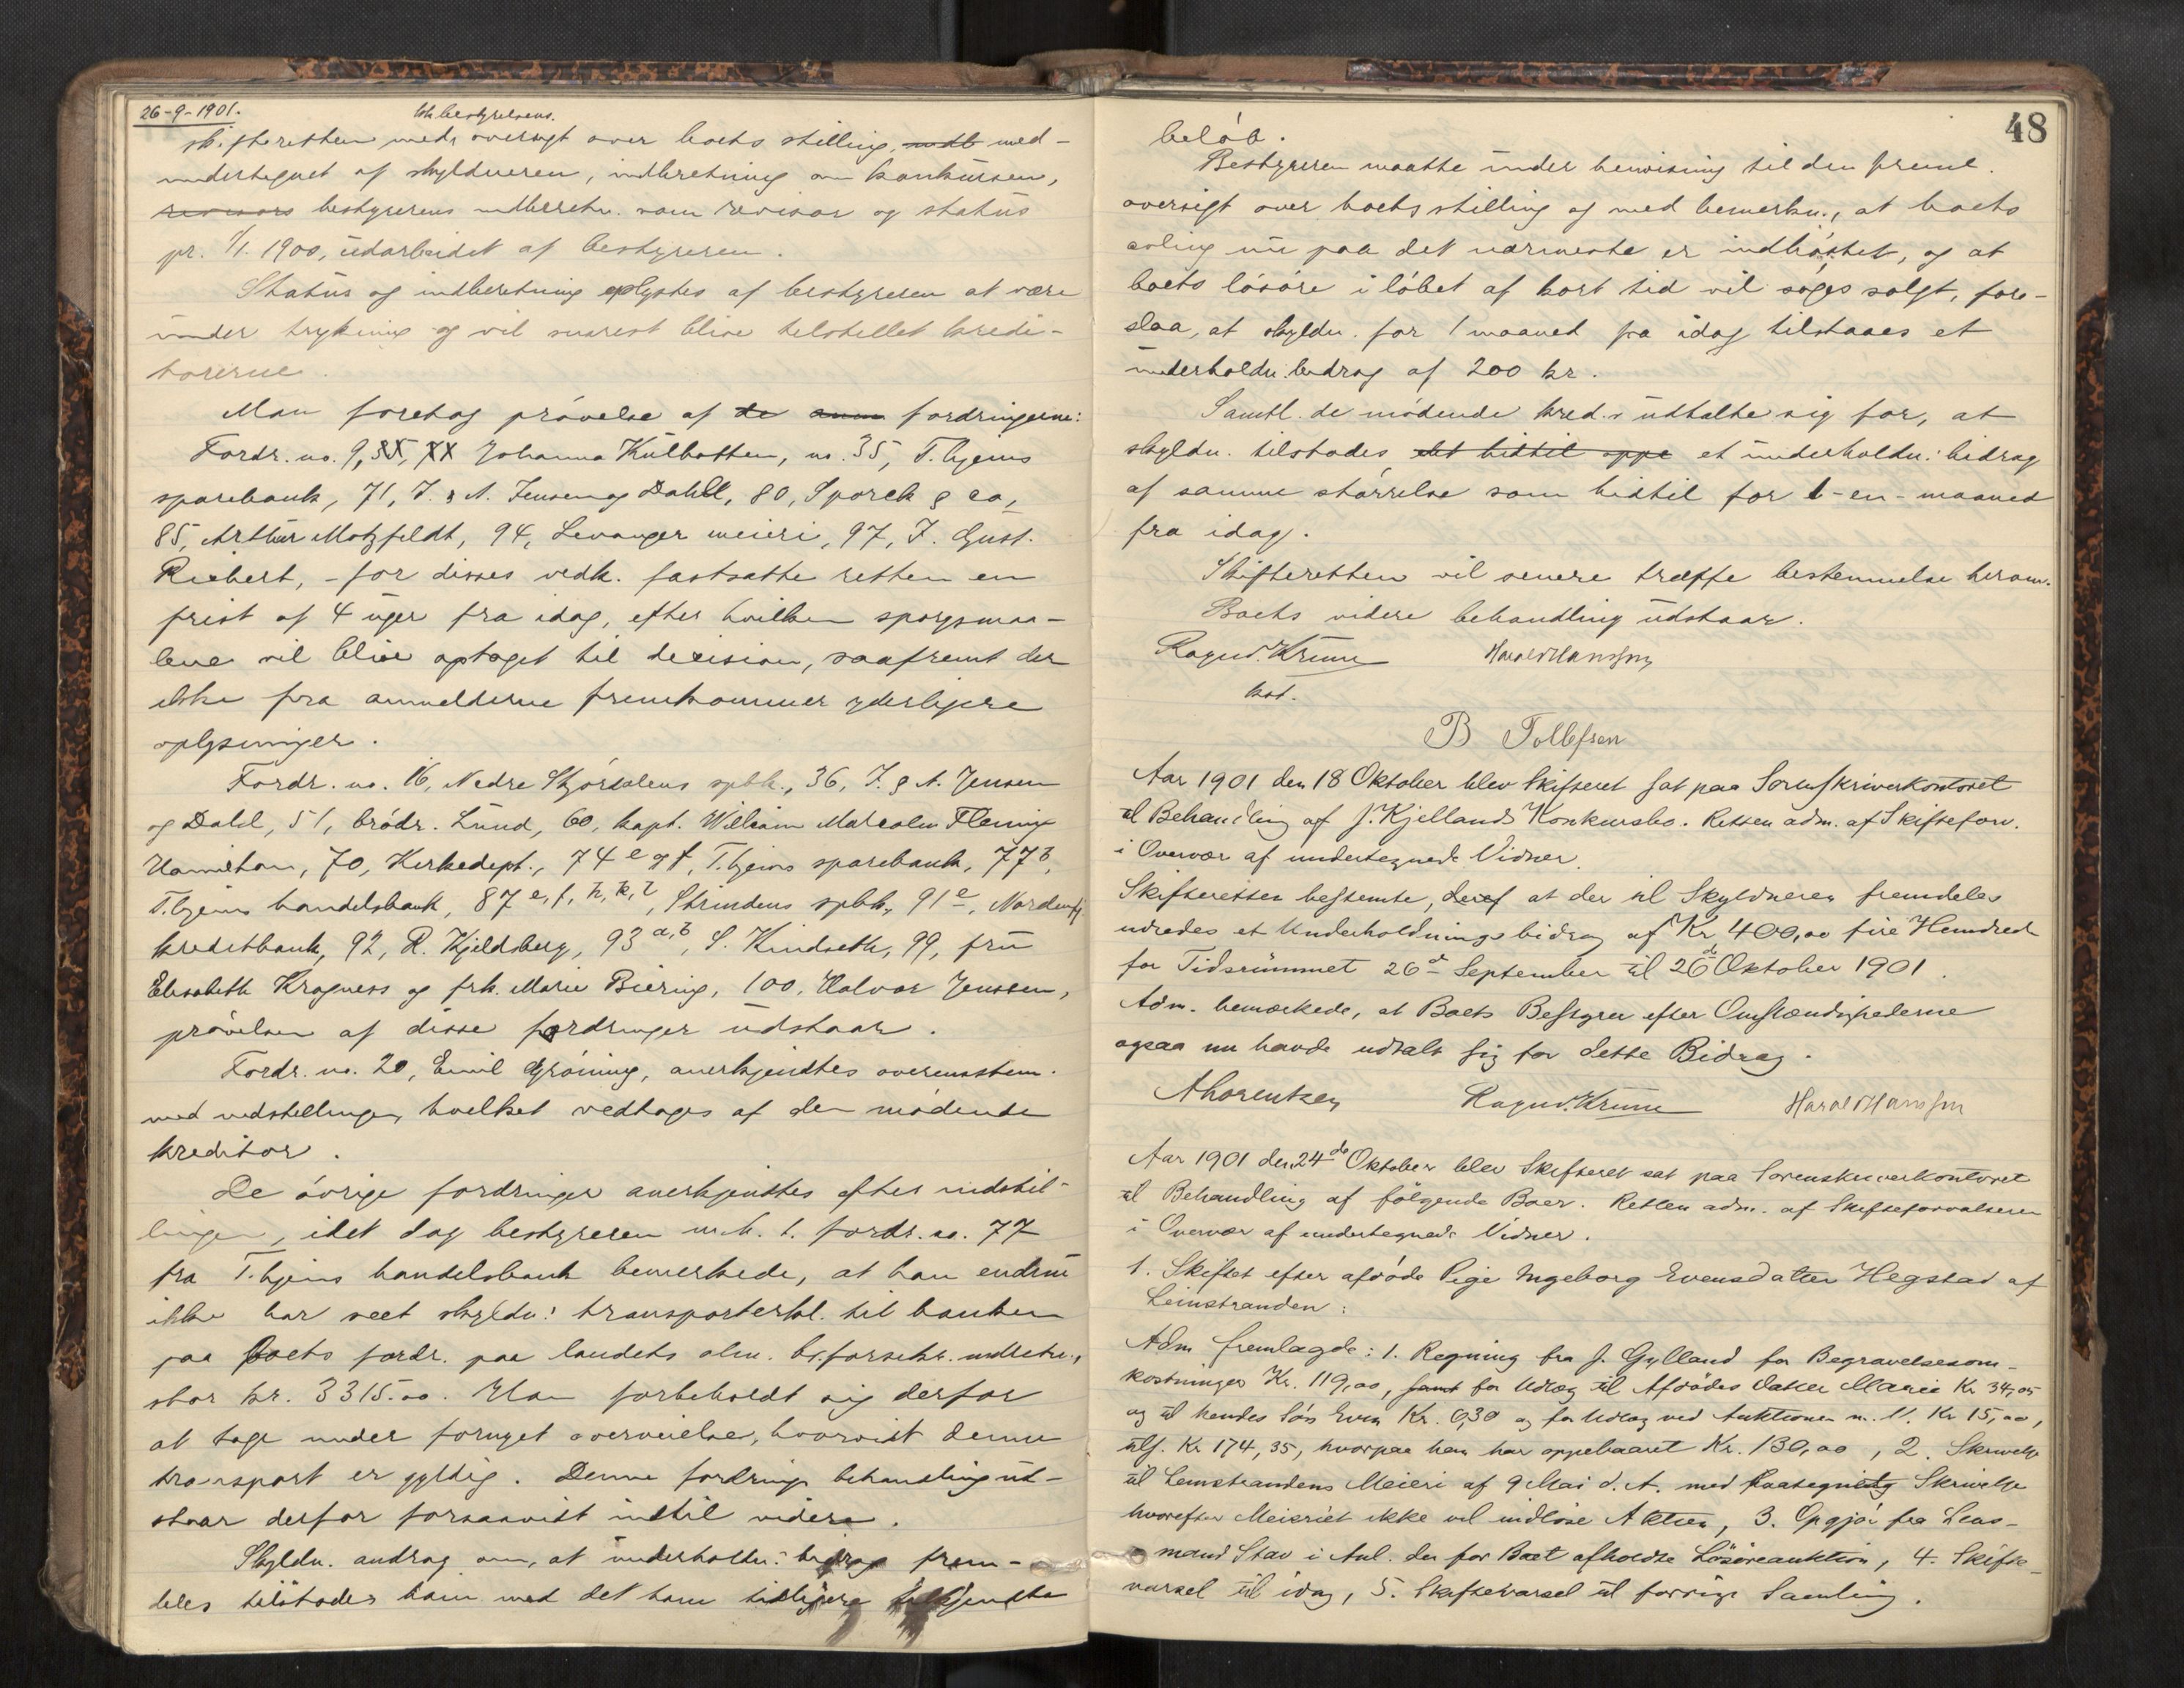 26-9-1901.
skifteretten med oversigt over boets stilling, med-
undertegnet af skyldneren, indberetning om konkursen,
revisors bestyrerens indberetn. som revisor og status
pr. 1/1. 1900, udarbeidet af bestyreren.
Status og indberetning oplystes af bestyreren at være
under trykning og vil snarest blive tilstillet kredi-
torerne.
Man foretog prövelse af de fordringerne:
Fordr. no. 9, Johanna Kulbotten, no. 35, T.hjems
sparebank, 71, J. & A. Jensen og Dahl, 80, Sporck & co,
85, Arthur Motzfeldt, 94, Levanger meieri, 97, J. Gust.
Richert, - for disses vedk. fastsatte retten en
frist af 4 uger fra idag, efter hvilken spörgsmaa-
lene vil blive optaget til decision, saafremt der
ikke fra anmelderne fremkommer yderligere
oplysninger.
Fordr. no. 16, Nedre Stjördalens spbk., 36, J. & A. Jensen
og Dahl, 51, brödr. Lund, 60, kapt. William Malcolm Fleming
Hamilton, 70, Kirkedept., 74 e og f, T.hjems sparebank, 77 b,
T.hjems handelsbank, 87 e, f, h, k, l, Strindens spbk., 91 e, Nordenfj.
kreditbank, 92, R. Kjeldsberg, 93 a, b, S. Kindseth, 99, fru
Elisabeth Kragness og frk. Marie Biering, 100, Halvor Jenssen,
prövelsen af disse fordringer udstaar.
Fordr. no. 20, Emil Gröning, anerkjendtes overensstem.
med indstillingen, hvilket vedtoges af den mödende
kreditor.
De övrige fordringer anerkjendtes efter indstil-
lingen, idet dog bestyreren m. h. t. fordr. no. 77
fra T.hjems handelsbank bemerkede, at han endnu
ikke har seet skyldn: transporterkl. til banken
paa boets fordr. paa landets alm. br.forsikr. indretn.,
stor kr. 3315.00. Han forbeholdt sig derfor
at tage under fornyet overveielse, hvorvidt denne
transport er gyldig. Denne fordrings behandling ud-
staar derfor forsaavidt indtil videre.
Skyldn. androg om, at underholdn: bidrag frem-
deles tilstodes ham med det ham tidligere tilkjendte
48
belöb.
Bestyreren maatte under henvisning til den freml.
oversigt over boets stilling og med bemerkn., at boets
avling nu paa det nærmeste er indhöstet, og at
boets lösöre i löbet af kort tid vil söges solgt, fore-
slaa, at skyldn. for 1 maaned fra idag tilstaaes et
underholdn. bidrag af 200 kr.
Samtl. de mödende kred.r udtalte sig for, at
skyldn. tilstodes det hittil oppe et underholdn: bidrag
af samme störrelse som hidtil for 1-en-maaned
fra idag.
Skifteretten vil senere træffe bestemmelse herom.
Boets videre behandling udstaar.
Ragnv. Krum Harald Hansson
kst.
B Tollefsen
Aar 1901 den 18 Oktober blev Skifteret sat paa Sorenskriverkontoret
til Behandling af J. Kjellands Konkursbo. Retten adm. af Skifteforv.
i Overvær af undertegnede Vidner.
Skifteretten bestemte, at der til Skyldneren fremdeles
udredes et Underholdningsbidrag af Kr 400,00 fire Hundrede
for Tidsrummet 26de September til 26de Oktober 1901.
Adm. bemærkede, at Boets Bestyrer efter Omstændighederne
ogsaa nu havde udtalt sig for dette Bidrag.
A Lorentzen Ragnv. Krum Harald Hansson
Aar 1901 den 24de Oktober blev Skifteret sat paa Sorenskriverkontoret
til Behandling af fölgende Boer. Retten adm. af Skifteforvalteren
i Overvær af undertegnede Vidner.
1. Skiftet efter afdöde Pige Ingeborg Evensdatter Hegstad af
Leinstranden:
Adm fremlagde: 1. Regning fra J. Gylland for Begravelsesom-
kostninger Kr. 119,00, samt for Udlæg til Afdödes Datter Marie Kr 34,05
og til hendes Sön Even Kr. 6,30 og for Udlæg ved Auktionen m. V. Kr 15,00,
tils. Kr 174,35, hvorpaa han har oppebaaret Kr. 130,00, 2. Skrivelse
til Leinstrandens Meieri af 9 Mai d. A. med Paategning Skrivelse
hvorefter Meieriet ikke vil indlöse Aktien, 3. Opgjör fra Lens-
mand Stav i Anl. den for Boet afholdte Lösöreauktion, 4. Skifte-
varsel til idag, 5. Skiftevarsel til forrige Samling.